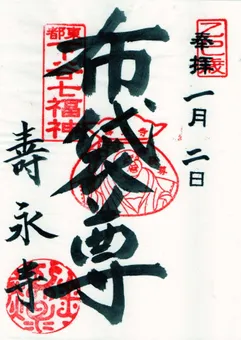 奉拝
一月二日
布袋尊
東都
下谷七福神
壽永寺